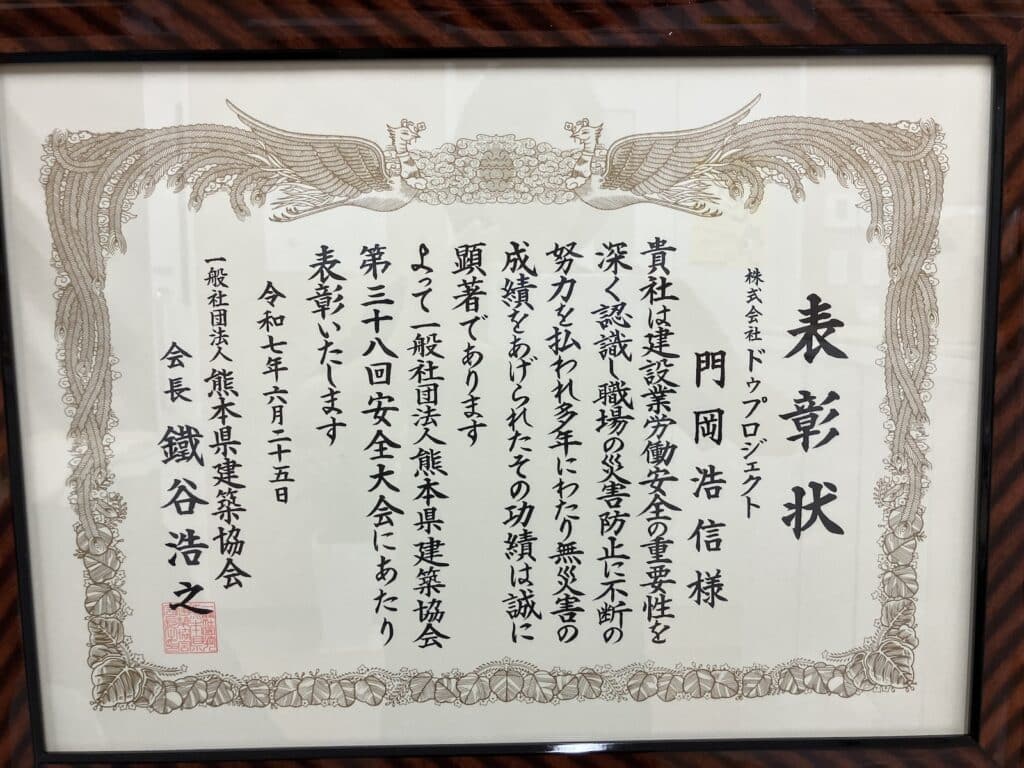 表彰状
株式会社 ドゥプロジェクト
門岡浩信様
貴社は建設業労働安全の重要性を
深く認識し職場の災害防止に不断の
努力を払われ多年にわたり無災害の
成績をあげられたその功績は誠に
顕著であります
よって一般社団法人熊本県建築協会
第三十八回安全大会にあたり
表彰いたします
令和七年六月二十五日
一般社団法人 熊本県建築協会
会長 鐵谷浩之